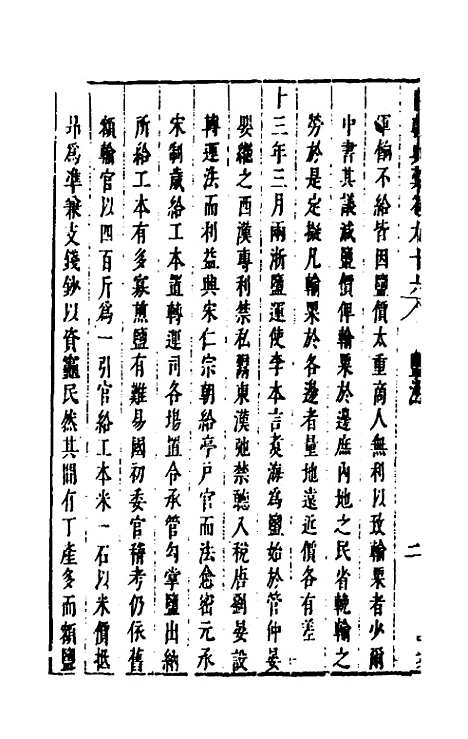 卷九十六 鹽法 二
運餉不給皆因鹽價太重商人無利以致輸粟者少爾
中書其議減鹽價俾輸粟於邊庶內地之民省輓輸之
勞於是定擬凡輸粟於各邊者量地遠近價各有差
十三年三月兩浙鹽運使李本言煑海為鹽始於管仲晏
嬰繼之西漢專利禁私鬻東漢弛禁聽入稅唐劉晏設
轉運法而利益興宋仁宗朝給亭戶官而法愈密元承
宋制歲給工本置轉運司各場置令丞管勾掌鹽出納
所給工本有多寡煎鹽有難易國初委官稽考仍依舊
額輸官以四百斤為一引官給工本米一石以米價低
昻為準兼支錢鈔以資竈民然其間有丁產多而額鹽